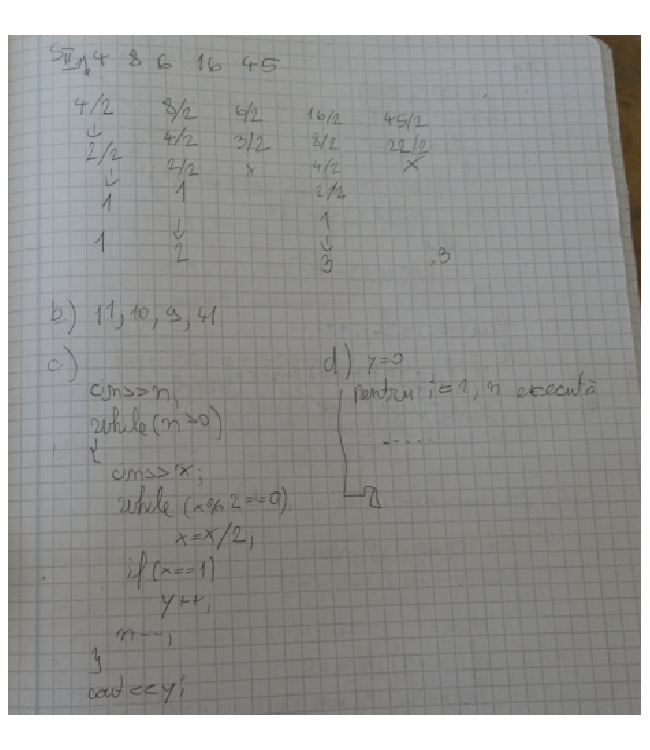 SII 1. 4 8 6 16 45
4/2 8/2 6/2 16/2 45/2
↓ 4/2 3/2 8/2 22/2
2/2 2/2 x 4/2 x
↓ 1 2/2
1 ↓ 1
1 2 ↓
3 , 3
b) 11, 10, 9, 41
c)
cin>>n;
while(n>0)
{
cin>>x;
while (x%2==0)
x=x/2;
if(x==1)
y++;
n--;
}
cout<<y;
d) y=0
pentru i=1, n execută
.....